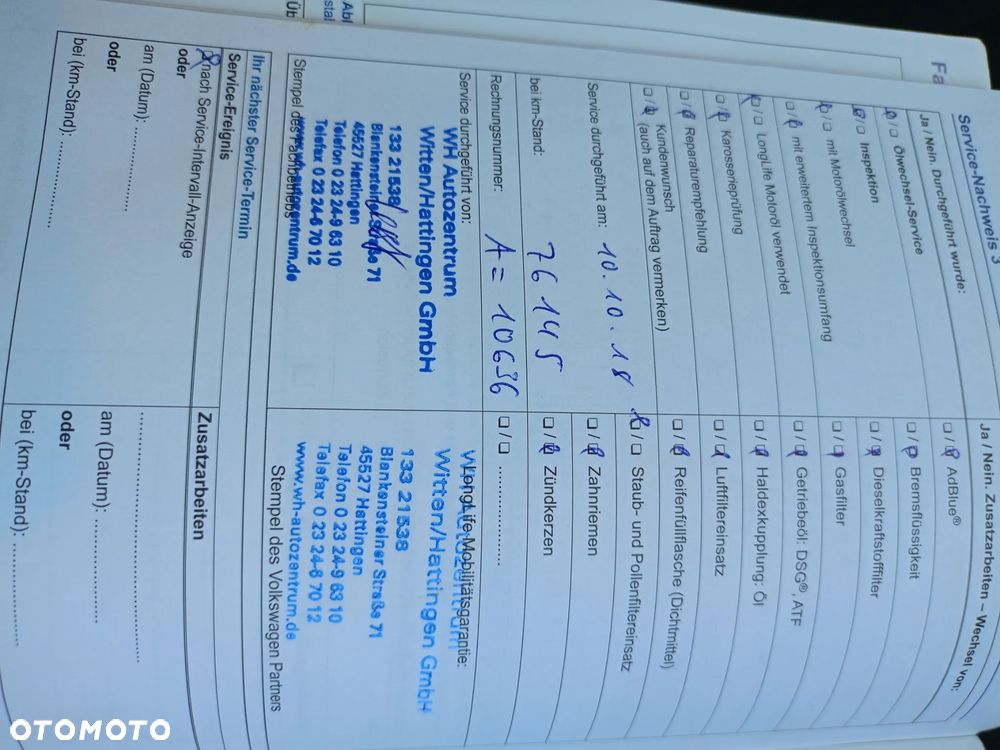 Service-Nachweis 3
Ja / Nein. Durchgeführt wurde:
Ölwechsel-Service
Inspektion
mit Motorölwechsel
mit erweitertem Inspektionsumfang
LongLife Motoröl verwendet
Karosserieprüfung
Reparaturempfehlung
Kundenwunsch
(auch auf dem Auftrag vermerken)
Service durchgeführt am: 10.10.18
bei km-Stand: 76145
Rechnungsnummer: A = 10636
Service durchgeführt von:
WH Autozentrum
Witten/Hattingen GmbH
133 21538
Blankensteiner Straße 71
45527 Hattingen
Telefon 0 23 24-9 63 10
Telefax 0 23 24-6 70 12
www.wh-autozentrum.de
Stempel des Fachbetriebs
Ja / Nein. Zusatzarbeiten – Wechsel von:
AdBlue®
Bremsflüssigkeit
Dieselkraftstofffilter
Gasfilter
Getriebeöl: DSG®, ATF
Haldexkupplung: Öl
Luftfiltereinsatz
Reifenfüllflasche (Dichtmittel)
Staub- und Pollenfiltereinsatz
Zahnriemen
Zündkerzen
LongLife Mobilitätsgarantie:
WH Autozentrum
Witten/Hattingen GmbH
133 21538
Blankensteiner Straße 71
45527 Hattingen
Telefon 0 23 24-9 63 10
Telefax 0 23 24-6 70 12
www.wh-autozentrum.de
Stempel des Volkswagen Partners
Ihr nächster Service-Termin
Service-Ereignis
nach Service-Intervall-Anzeige
oder
am (Datum):
oder
bei (km-Stand):
Zusatzarbeiten
am (Datum):
oder
bei (km-Stand):
Abl
stal
Üb
Fa
OTOMOTO